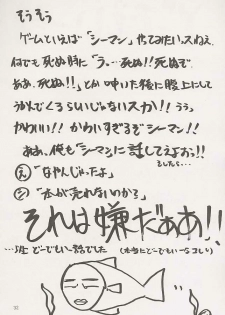 そうそう
ゲームといえば「シーマン」やってみたいっスねぇ
何でも死ぬ時に「う、…死ぬ!!死ぬぞ
ああ、死ぬ!!」とか呻いた後に腹上にして
うかんでくるらしいじゃないスか!!うぅ
かわいい!!かわいすぎるぞシーマン!!
ああ、俺もシーマンに話してえよおっ!!
もしたら…
え「なやんじゃったよ」
シ「本が売れないのか?」
それは嫌だああ!!
…って どーでもいー話でした
(本当にどーでもいーなコレ)